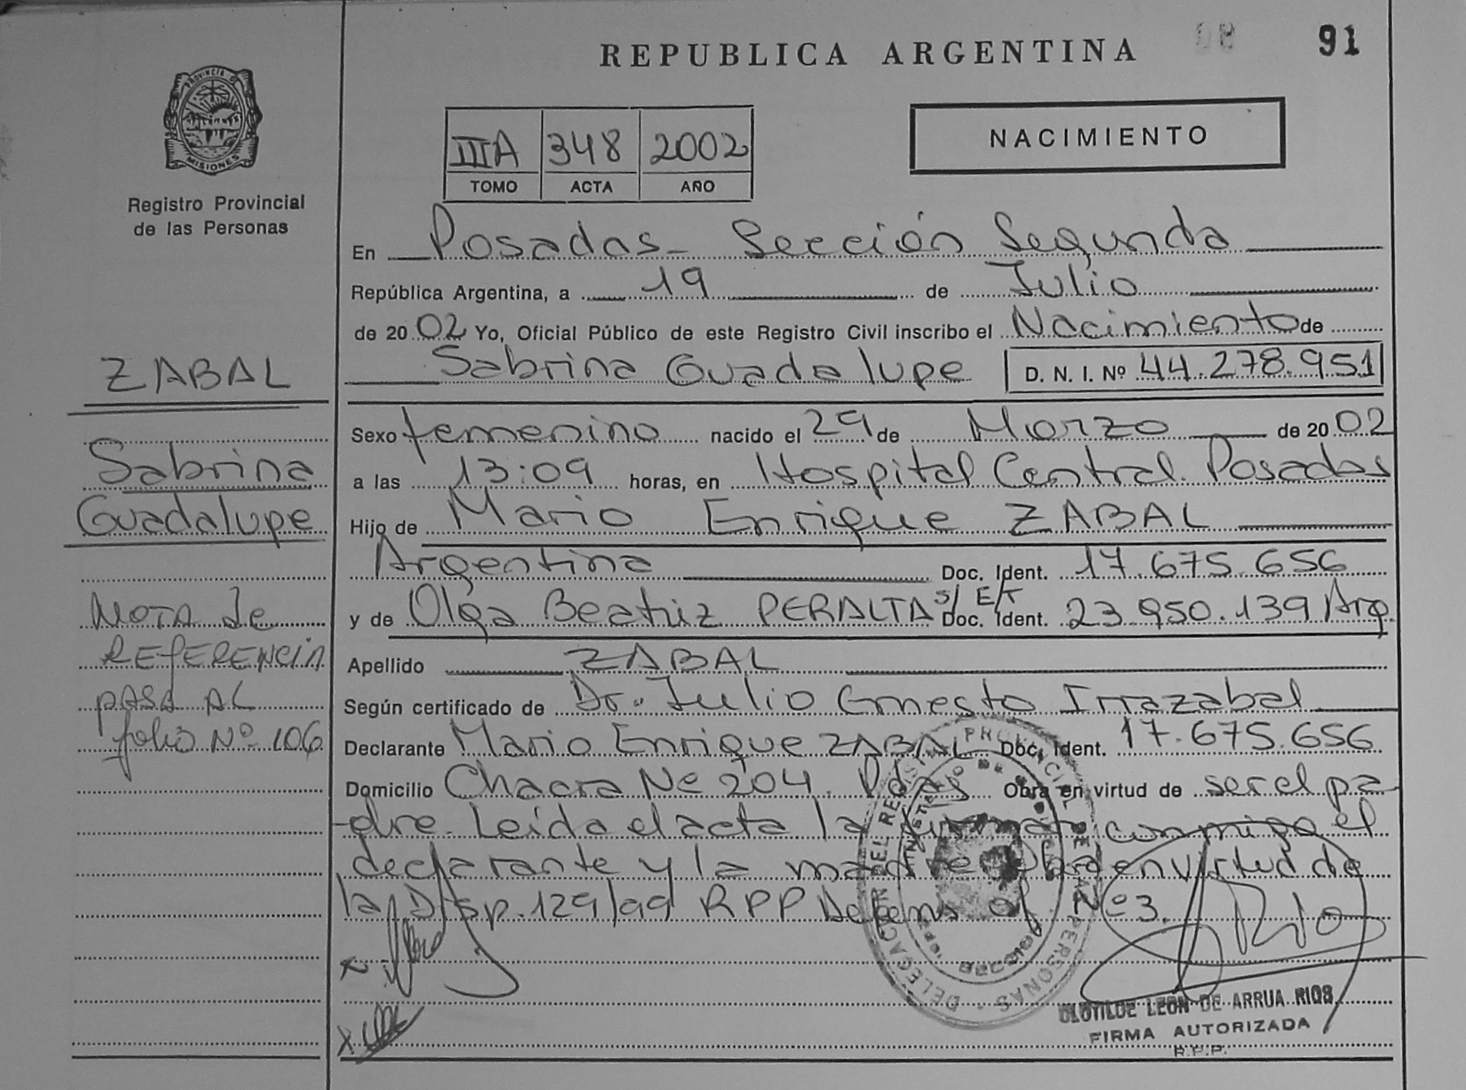 REPUBLICA ARGENTINA
91
PROVINCIA DE
MISIONES
Registro Provincial
de las Personas
IIIA 348 2002
TOMO ACTA AÑO
NACIMIENTO
En Posadas - Sección Segunda
República Argentina, a 19 de Julio
de 2002 Yo, Oficial Público de este Registro Civil inscribo el Nacimiento de
Sabrina Guadalupe D. N. I. Nº 44.278.951
ZABAL
Sabrina
Guadalupe
NOTA de
REFERENCIA
PASA AL
folio Nº 106
Sexo femenino nacido el 29 de Marzo de 2002
a las 13:09 horas, en Hospital Central. Posadas
Hijo de Mario Enrique ZABAL
Argentina Doc. Ident. 17.675.656
y de Olga Beatriz PERALTA S/ E/T Doc. Ident. 23.950.139 Arg.
Apellido ZABAL
Según certificado de Dr. Julio Ernesto Irrazabal
Declarante Mario Enrique ZABAL Doc. Ident. 17.675.656
Domicilio Chacra Nº 204. Pdas Obra en virtud de ser el pa-
dre. Leída el acta la firman conmigo el
declarante y la madre Obra en virtud de
la Disp. 129/99 RPP Nº3.
DELEGACION DEL REGISTRO PROVINCIAL DE LAS PERSONAS
CLOTILDE LEON DE ARRUA RIOS
FIRMA AUTORIZADA
R.P.P.